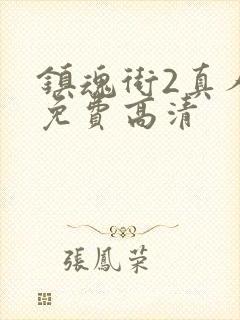 鎮魂街2真人
免費高清
張鳳榮